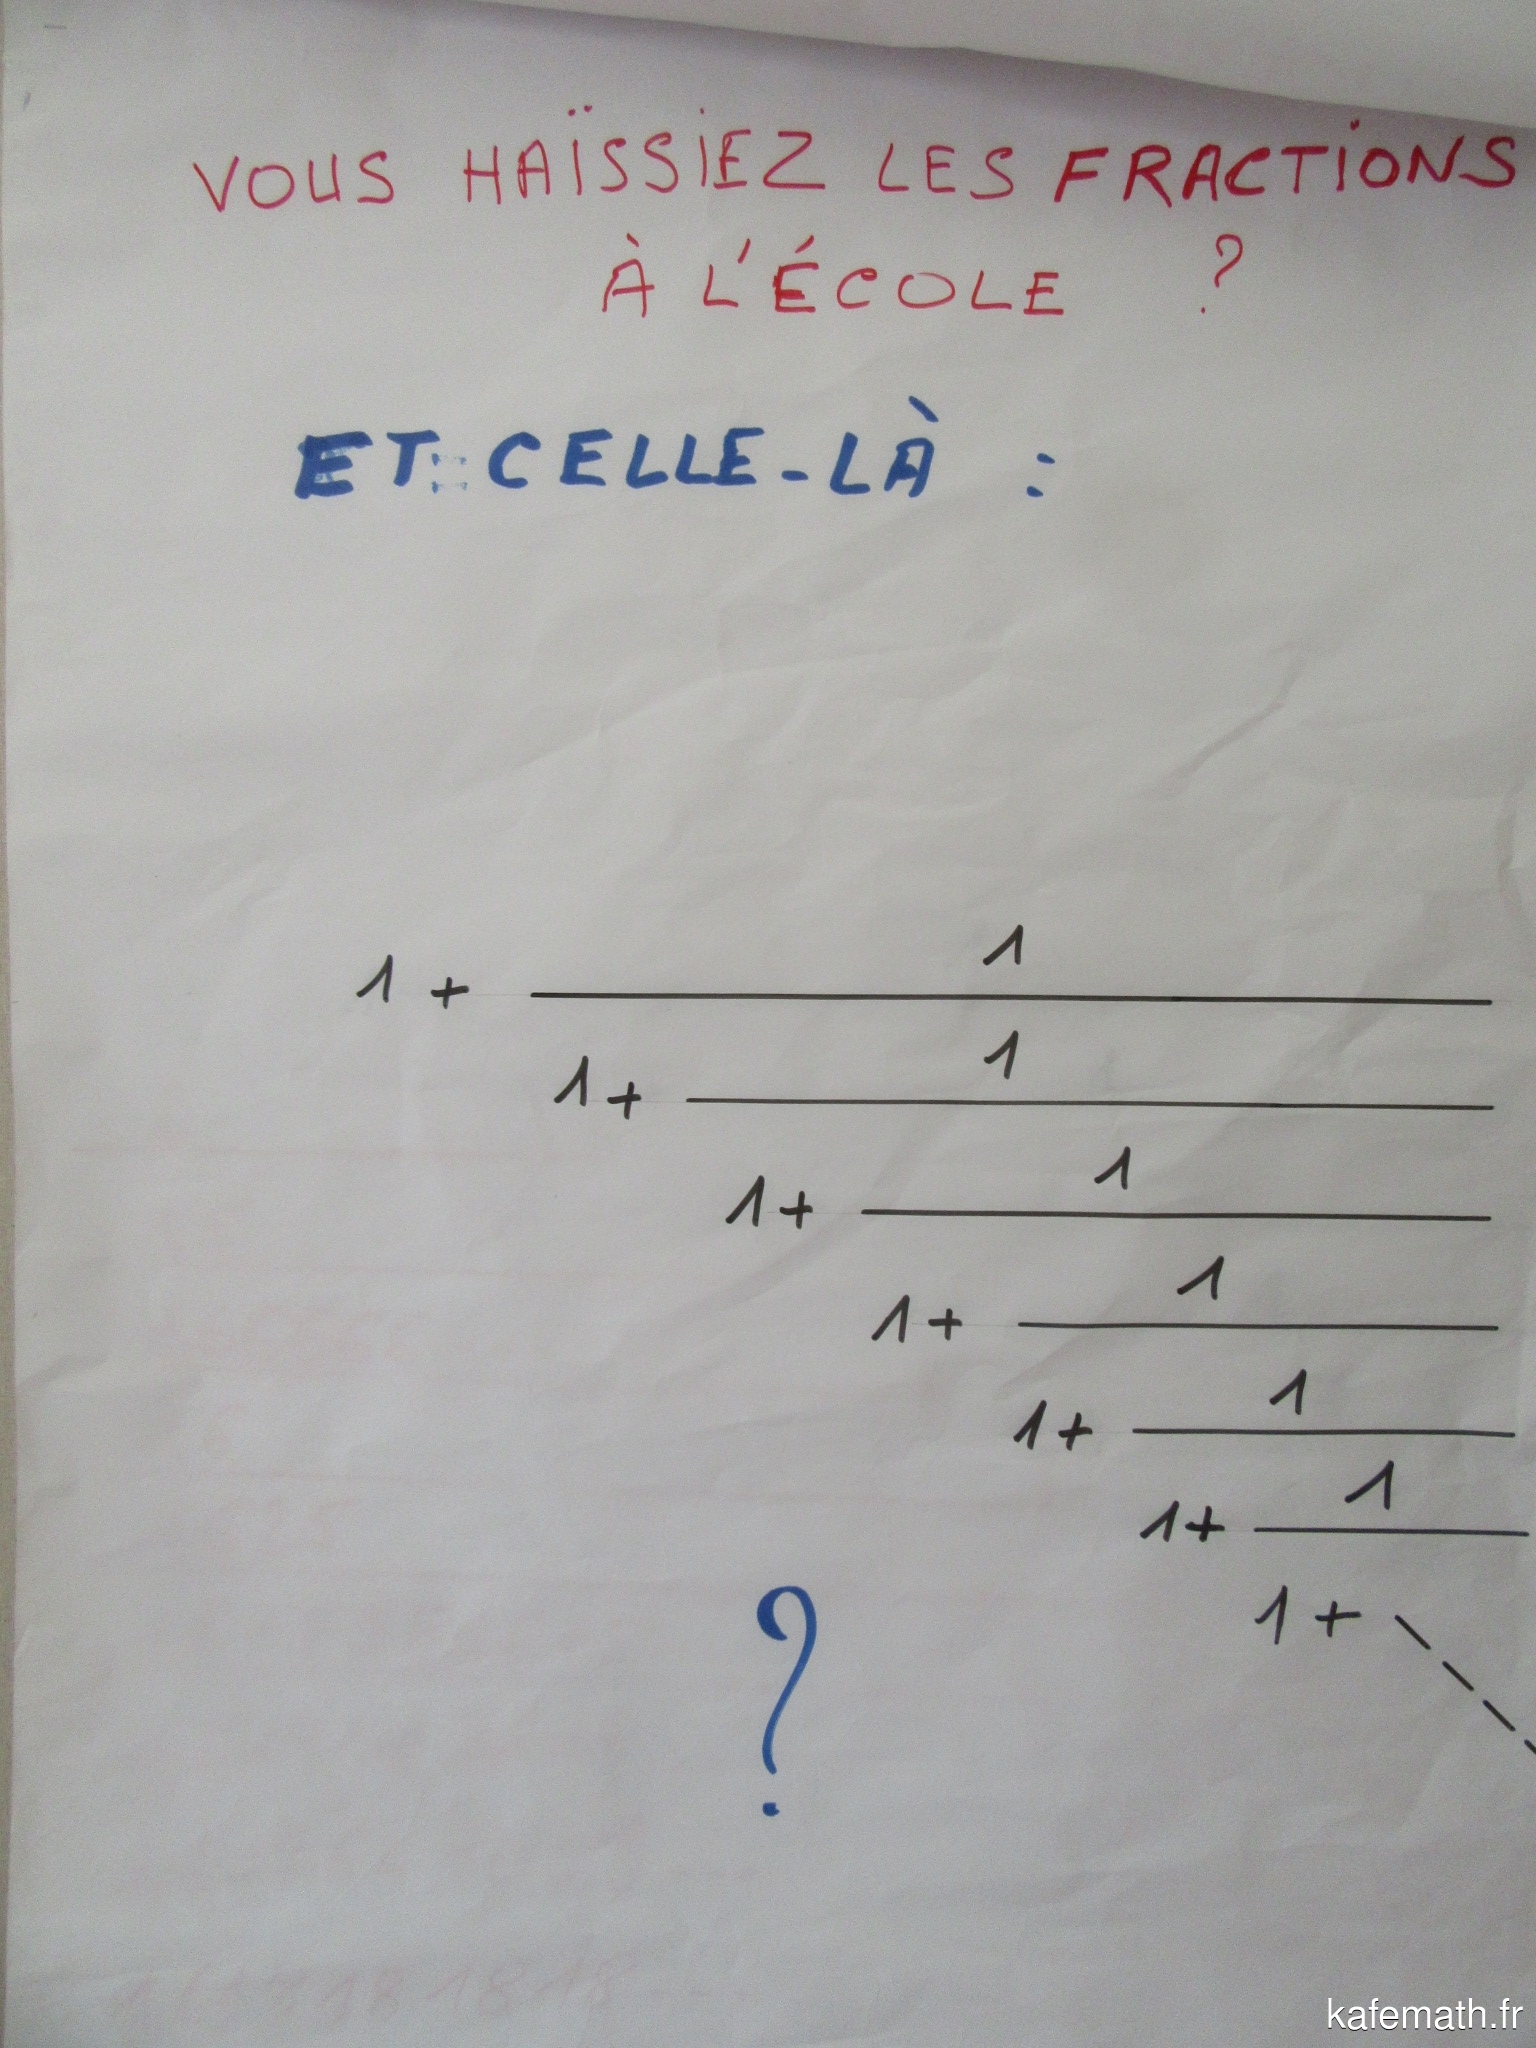 VOUS HAÏSSIEZ LES FRACTIONS
À L'ÉCOLE ?
ET CELLE-LÀ :
1 + 1
1 + 1
1 + 1
1 + 1
1 + 1
1 + 1
1 +
?
kafemath.fr